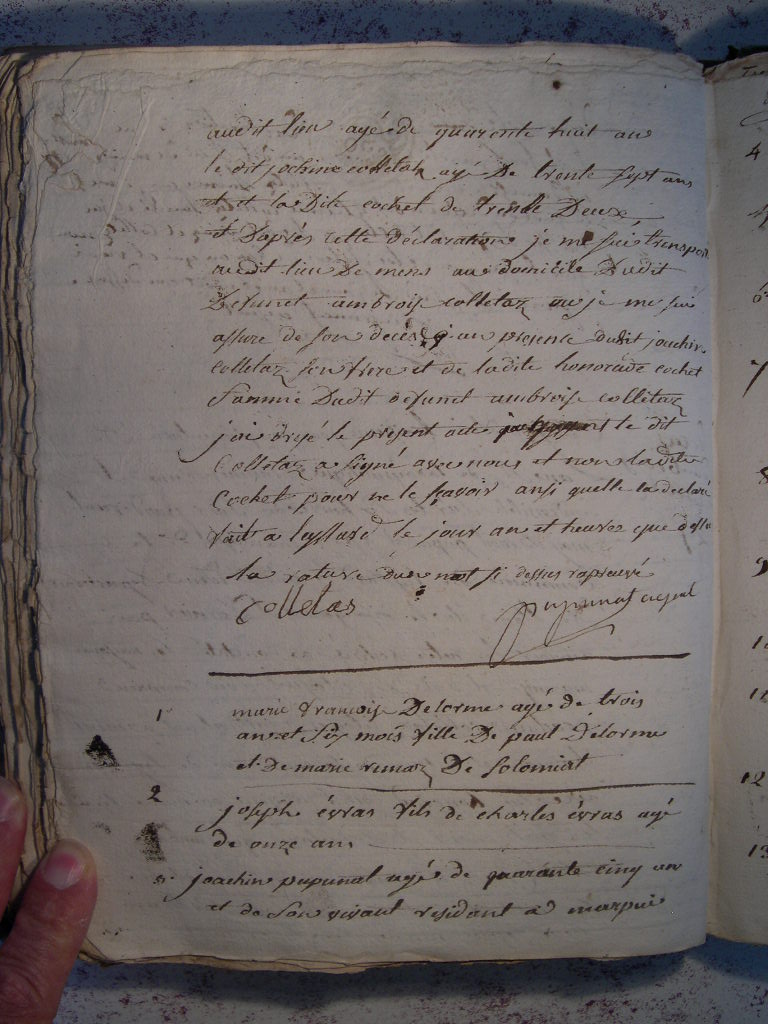 audit lieu agé de quarente huit an
le dit jochime colletaz agé De trente sept ans
et la Dite cochet de trente Deux,
et D'après cette déclaration je me suis transport
audit lieu De mens au domicile Dudit
Defunct ambroise colletaz ou je me sui
assure de son deces en presence dudit jouachin
colletaz son frere et de ladite honorade cochet
famme Dudit defunct ambroise colletaz
joi dresé le présent acte le dit
Colletaz a signé avec nous et non ladite
Cochet pour ne le scavoir ansi quelle la declaré
fait a le jour an et heures que dessu
la rature dun mot si dessus raprouvé
Colletas pupunat
1 marie francoise Delorme agé de trois
an et six mois fille De paul Delorme
et De marie De solomiat
2 joseph évras fils de charles évras agé
de onze ans
3 joachin pupunat agé de quarante cinq an
et de son vivant residant a marpui
4
7
9
12
13